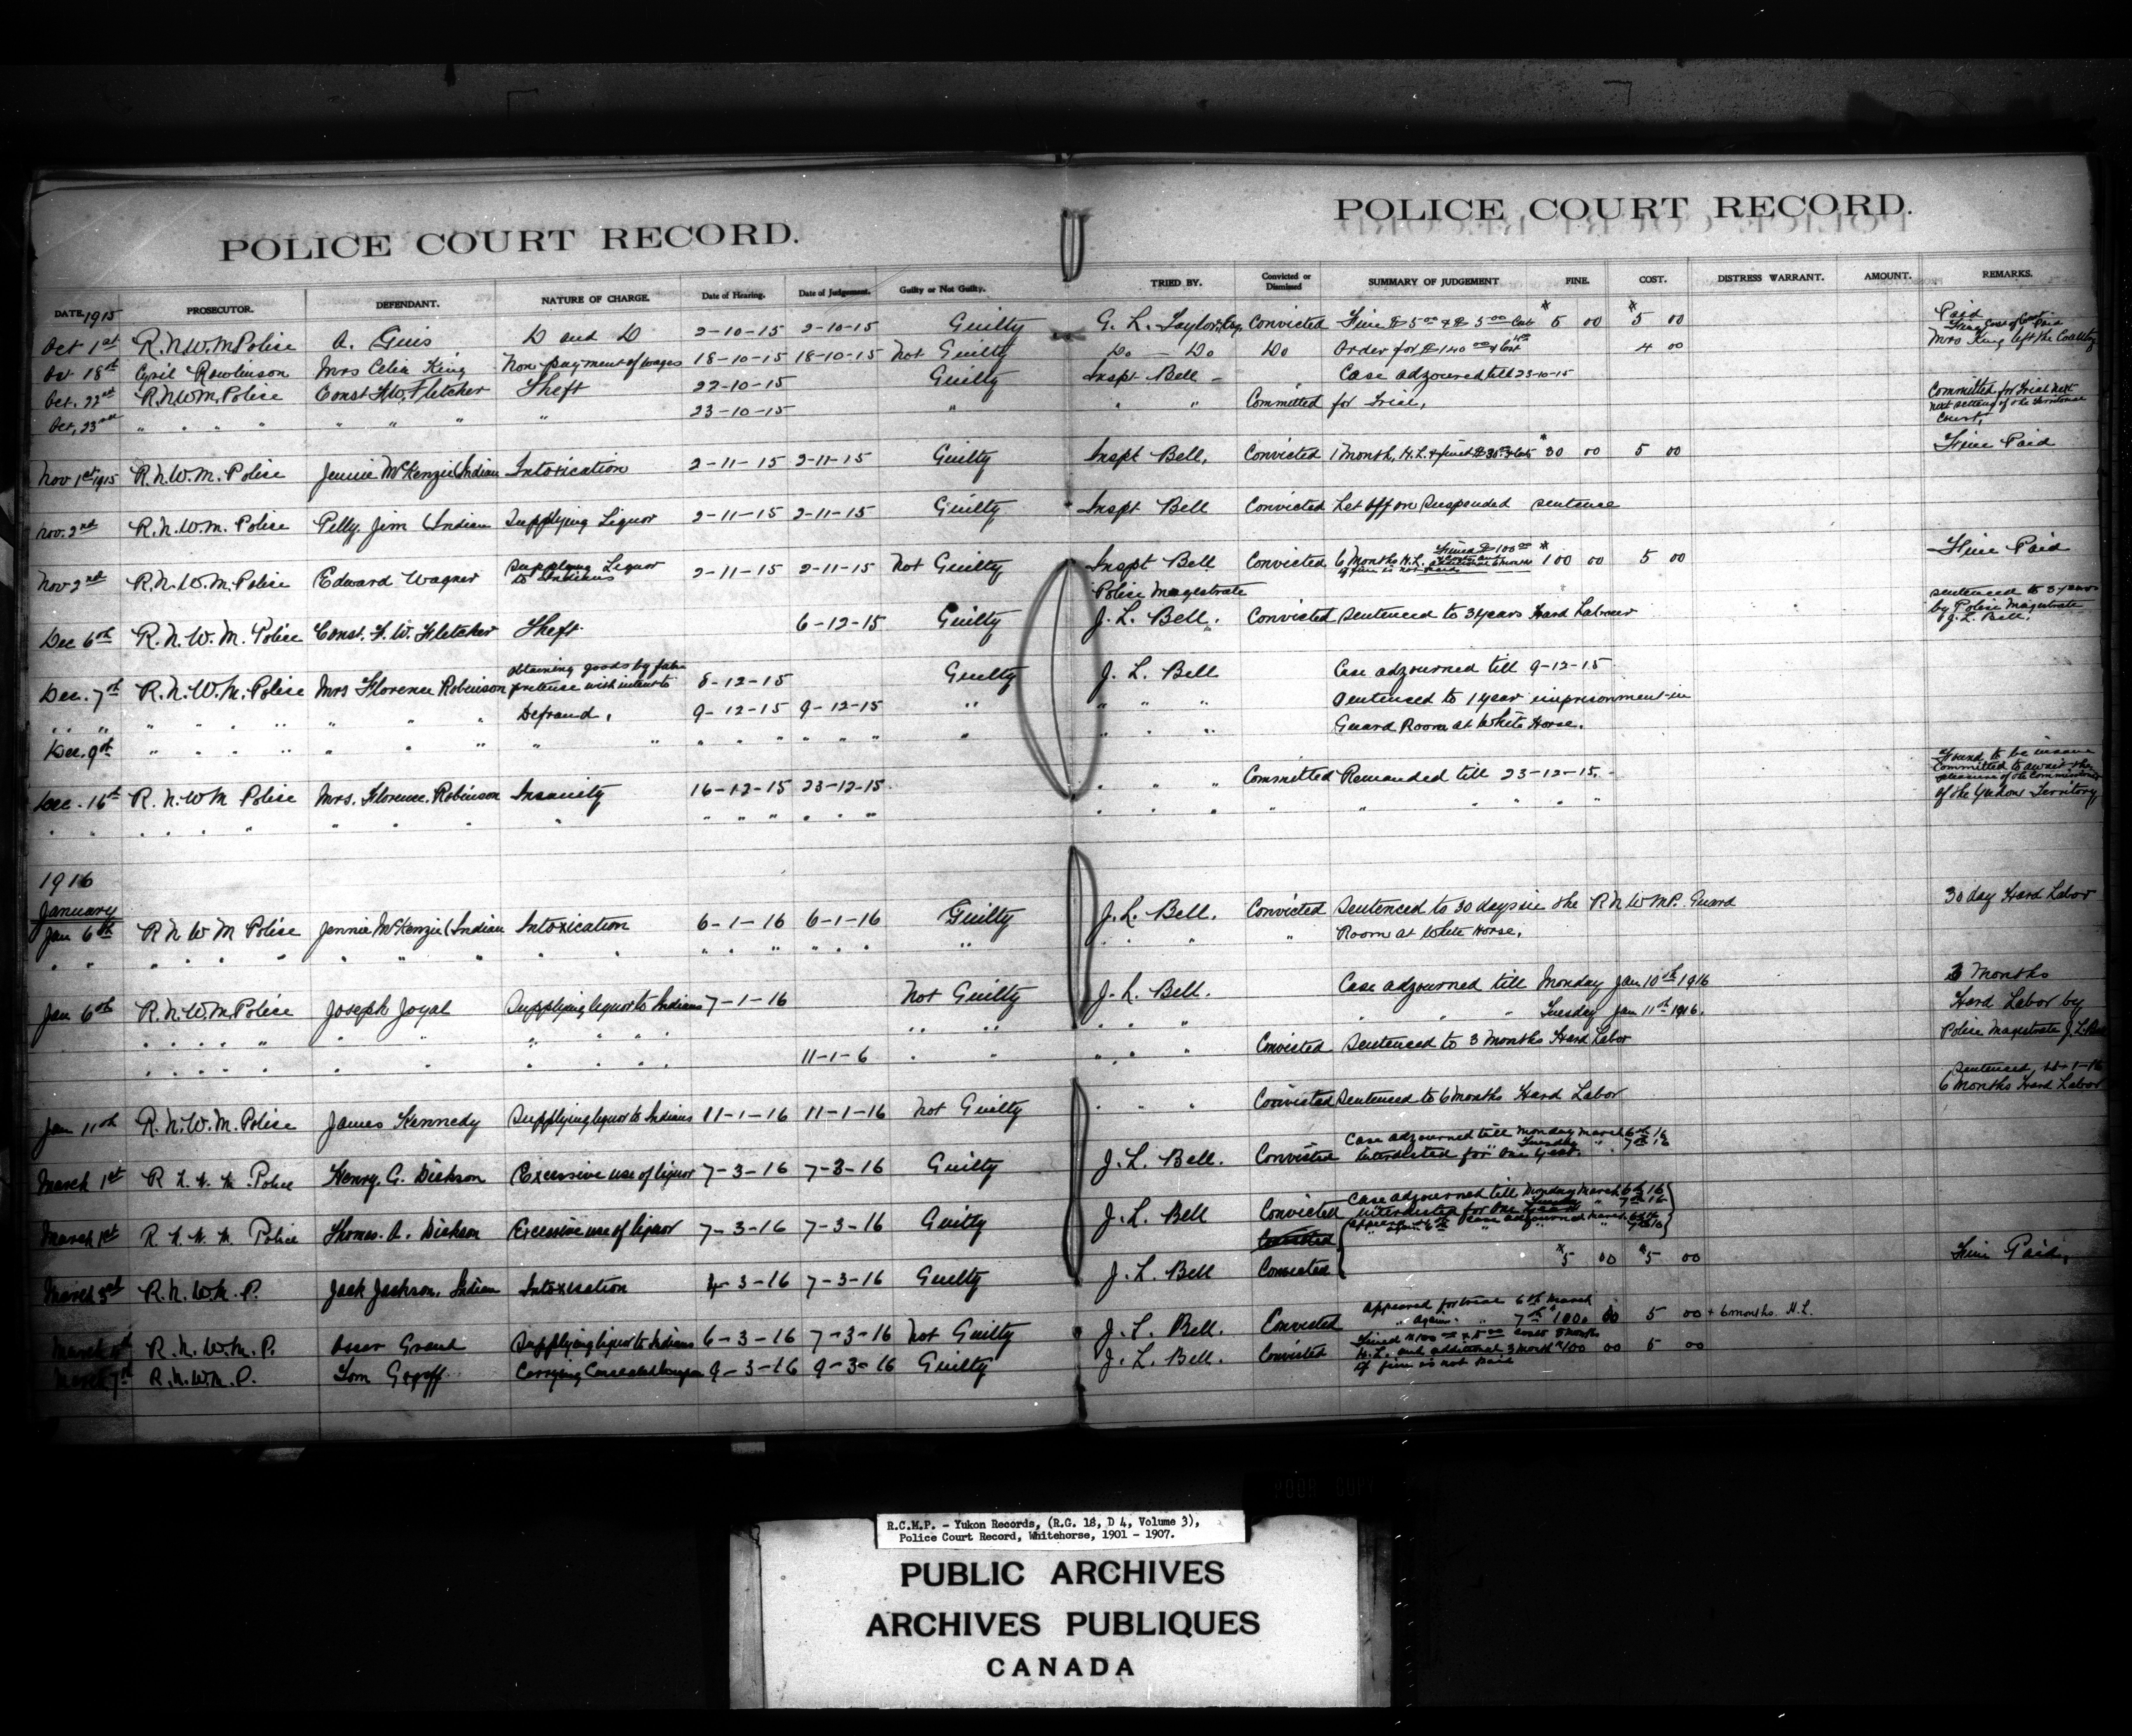 POLICE COURT RECORD.
DATE 1915 PROSECUTOR. DEFENDANT. NATURE OF CHARGE. Date of Hearing. Date of Judgement. Guilty or Not Guilty.
Oct 1st R.N.W.M Police A. Guis D and D 2-10-15 2-10-15 Guilty
Oct 18th Cyril Rowlinson Mrs Celia King Non payment of wages 18-10-15 18-10-15 Not Guilty
Oct. 22nd R.N.W.M. Police Const F.W. Fletcher Theft 22-10-15 Guilty
Oct, 23rd " " " " " " " " 23-10-15 "
Nov 1st 1915 R.N.W.M. Police Jennie McKenzie (Indian Intoxication 2-11-15 2-11-15 Guilty
Nov. 2nd R.N.W.M. Police Pelly Jim (Indian Supplying Liquor 2-11-15 2-11-15 Guilty
Nov 2nd R.N.W.M. Police Edward Wagner Supplying Liquor to Indians 2-11-15 2-11-15 Not Guilty
Dec 6th R.N.W.M. Police Const. F.W. Fletcher Theft 6-12-15 Guilty
Dec. 7th R.N.W.M. Police Mrs Florence Robinson obtaining goods by false pretense with intent to 8-12-15 Guilty
" " " " " " " " " Defraud. 9-12-15 9-12-15 "
Dec. 9th " " " " " " " " " " " " " " " "
Dec. 16th R.N.W.M Police Mrs. Florence Robinson Insanity 16-12-15 23-12-15
" " " " " " " " " " " " " " " "
1916
January
Jan 6th R N W M Police Jennie McKenzie (Indian Intoxication 6-1-16 6-1-16 Guilty
" " " " " " " " " " " " " " " " " "
Jan 6th R.N.W.M. Police Joseph Joyal Supplying liquor to Indians 7-1-16 Not Guilty
" " " " " " " " " " " "
" " " " " " " " " " " 11-1-6 " "
Jan 11th R.N.W.M. Police James Kennedy Supplying liquor to Indians 11-1-16 11-1-16 Not Guilty
March 1st R N.W.M. Police Henry. G. Dickson Excessive use of liquor 7-3-16 7-3-16 Guilty
March 1st R N.W.M. Police Thomas. A. Dickson Excessive use of liquor 7-3-16 7-3-16 Guilty
March 3rd R.N.W.M.P. Jack Jackson, Indian Intoxication 4-3-16 7-3-16 Guilty
R.N.W.M.P. Grant Supplying liquor to Indians 6-3-16 7-3-16 Not Guilty
March 7th R.N.W.M.P. Tom Carrying Concealed 9-3-16 9-3-16 Guilty
POLICE COURT RECORD.
TRIED BY. Convicted or Dismissed SUMMARY OF JUDGEMENT FINE. COST. DISTRESS WARRANT. AMOUNT. REMARKS.
G. L. Taylor, Esq. Convicted Fine $5 00 & $5 00 Cost 5 00 5 00 Paid
Do - Do Do Order for $140 00 & Cost 4 00 Mrs King left the Country
Inspt Bell - Case adjourned till 23-10-15
" " Committed for Trial, Committed for Trial next
next setting of the Territorial
Court,
Inspt Bell, Convicted 1 Month, H.L. & fined 30 00 5 00 Fine Paid
Inspt Bell Convicted Let off on Suspended sentence
Inspt Bell Convicted 6 Months H.L. Fined $100 00 & Costs and additional 6 months if fine is not paid 100 00 5 00 Fine Paid
Police Magestrate
J. L. Bell. Convicted Sentenced to 3 years Hard Labour sentenced to 3 years
by Police Magestrate
J. L. Bell.
J. L. Bell Case adjourned till 9-12-15
" " " Sentenced to 1 year imprisonment in
" " " Guard Room at White Horse.
" " " Committed Remanded till 23-12-15. Found to be insane
Committed to await the
pleasure of the Commissioner
of the Yukon Territory
" " " " " " " "
J. L. Bell. Convicted Sentenced to 30 days in the R N W M P. Guard 30 day Hard Labor
" " " Room at White Horse.
J. L. Bell. Case adjourned till Monday Jan 10th 1916 3 Months
" " " " " " Tuesday Jan 11th 1916. Hard Labor by
" " " Convicted Sentenced to 3 Months Hard Labor Police Magestrate J. L. Bell
" " " Convicted Sentenced to 6 months Hard Labor Sentenced 11-1-16
6 Months Hard Labor
J. L. Bell. Convicted Case adjourned till Monday March 6th 16
" Tuesday " 7th 16
Interdicted for One Year.
J. L. Bell Convicted Case adjourned till Monday March 6th 16
Interdicted for One Year
J. L. Bell Convicted 5 00 5 00 Fine Paid,
J. L. Bell. Convicted Appeared for trial 6th March
" again " 7th 5 00 + 6 months H.L.
J. L. Bell. Convicted H.L. and additional 3 month 100 00 5 00
if fine is not paid
R.C.M.P. - Yukon Records, (R.G. 18, D 4, Volume 3),
Police Court Record, Whitehorse, 1901 - 1907.
PUBLIC ARCHIVES
ARCHIVES PUBLIQUES
CANADA